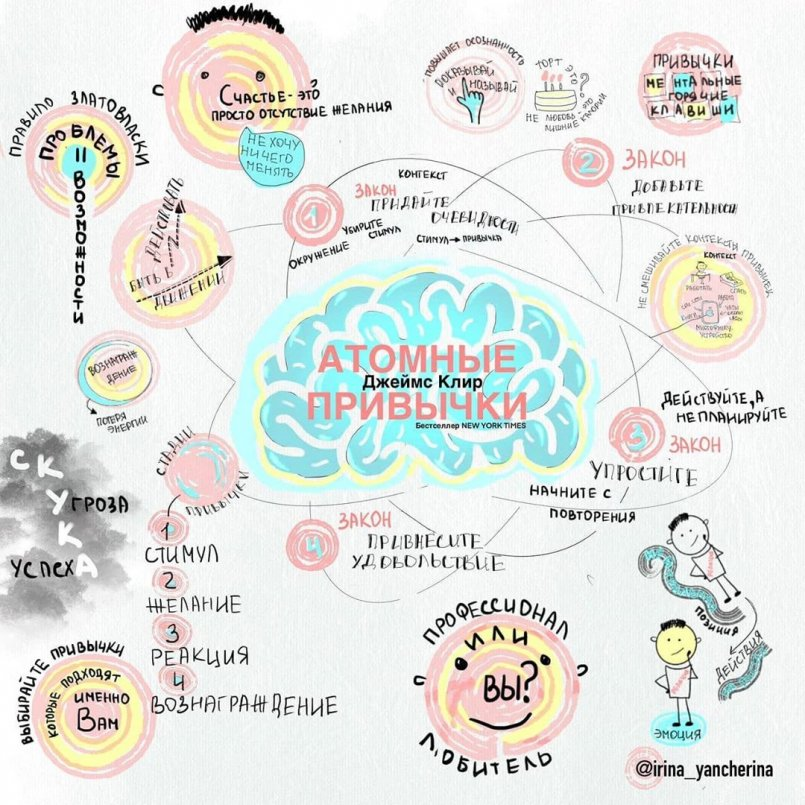 ПРАВИЛО ЗЛАТОВЛАСКИ
ПРОБЛЕМЫ
=
ВОЗМОЖНОСТИ
СЧАСТЬЕ - ЭТО
ПРОСТО ОТСУТСТВИЕ ЖЕЛАНИЯ
НЕ ХОЧУ
НИЧЕГО
МЕНЯТЬ
ПОВЫШАЕТ ОСОЗНАННОСТЬ
ПОКАЗЫВАЙ
И НАЗЫВАЙ
ТОРТ ЭТО
?
НЕ ЛЮБОВЬ
ЭТО
ЛИШНИЕ КАЛОРИИ
ПРИВЫЧКИ
МЕНТАЛЬНЫЕ
ГОРЯЧИЕ
КЛАВИШИ
ДЕЙСТВОВАТЬ
БЫТЬ В
ДВИЖЕНИИ
КОНТЕКСТ
1 ЗАКОН
ПРИДАЙТЕ
ОЧЕВИДНОСТИ
УБИРИТЕ
СТИМУЛ
ОКРУЖЕНИЕ
СТИМУЛ → ПРИВЫЧКА
2 ЗАКОН
ДОБАВЬТЕ
ПРИВЛЕКАТЕЛЬНОСТИ
НЕ СМЕШИВАЙТЕ КОНТЕКСТЫ ПРИВЫЧЕК
КОНТЕКСТ
РАБОТАТЬ
СПАТЬ
УСТРОЙСТВО
АТОМНЫЕ
Джеймс Клир
ПРИВЫЧКИ
Бестселлер NEW YORK TIMES
ВОЗНАГРАЖ-
ДЕНИЕ
ПОТЕРЯ
ЭНЕРГИИ
ДЕЙСТВУЙТЕ, А
НЕ ПЛАНИРУЙТЕ
3 ЗАКОН
УПРОСТИТЕ
НАЧНИТЕ С
ПОВТОРЕНИЯ
СКУКА
ГРОЗА
УСПЕХА
СТАДИИ
ПРИВЫЧКИ
1
СТИМУЛ
2
ЖЕЛАНИЕ
3
РЕАКЦИЯ
4
ВОЗНАГРАЖДЕНИЕ
4 ЗАКОН
ПРИВНЕСИТЕ
УДОВОЛЬСТВИЕ
ВЫБИРАЙТЕ ПРИВЫЧКИ
КОТОРЫЕ ПОДХОДЯТ
ИМЕННО
ВАМ
ПРОФЕССИОНАЛ
ИЛИ
ВЫ?
ЛЮБИТЕЛЬ
ПОЗИЦИЯ
ДЕЙСТВИЯ
ЭМОЦИЯ
@irina_yancherina